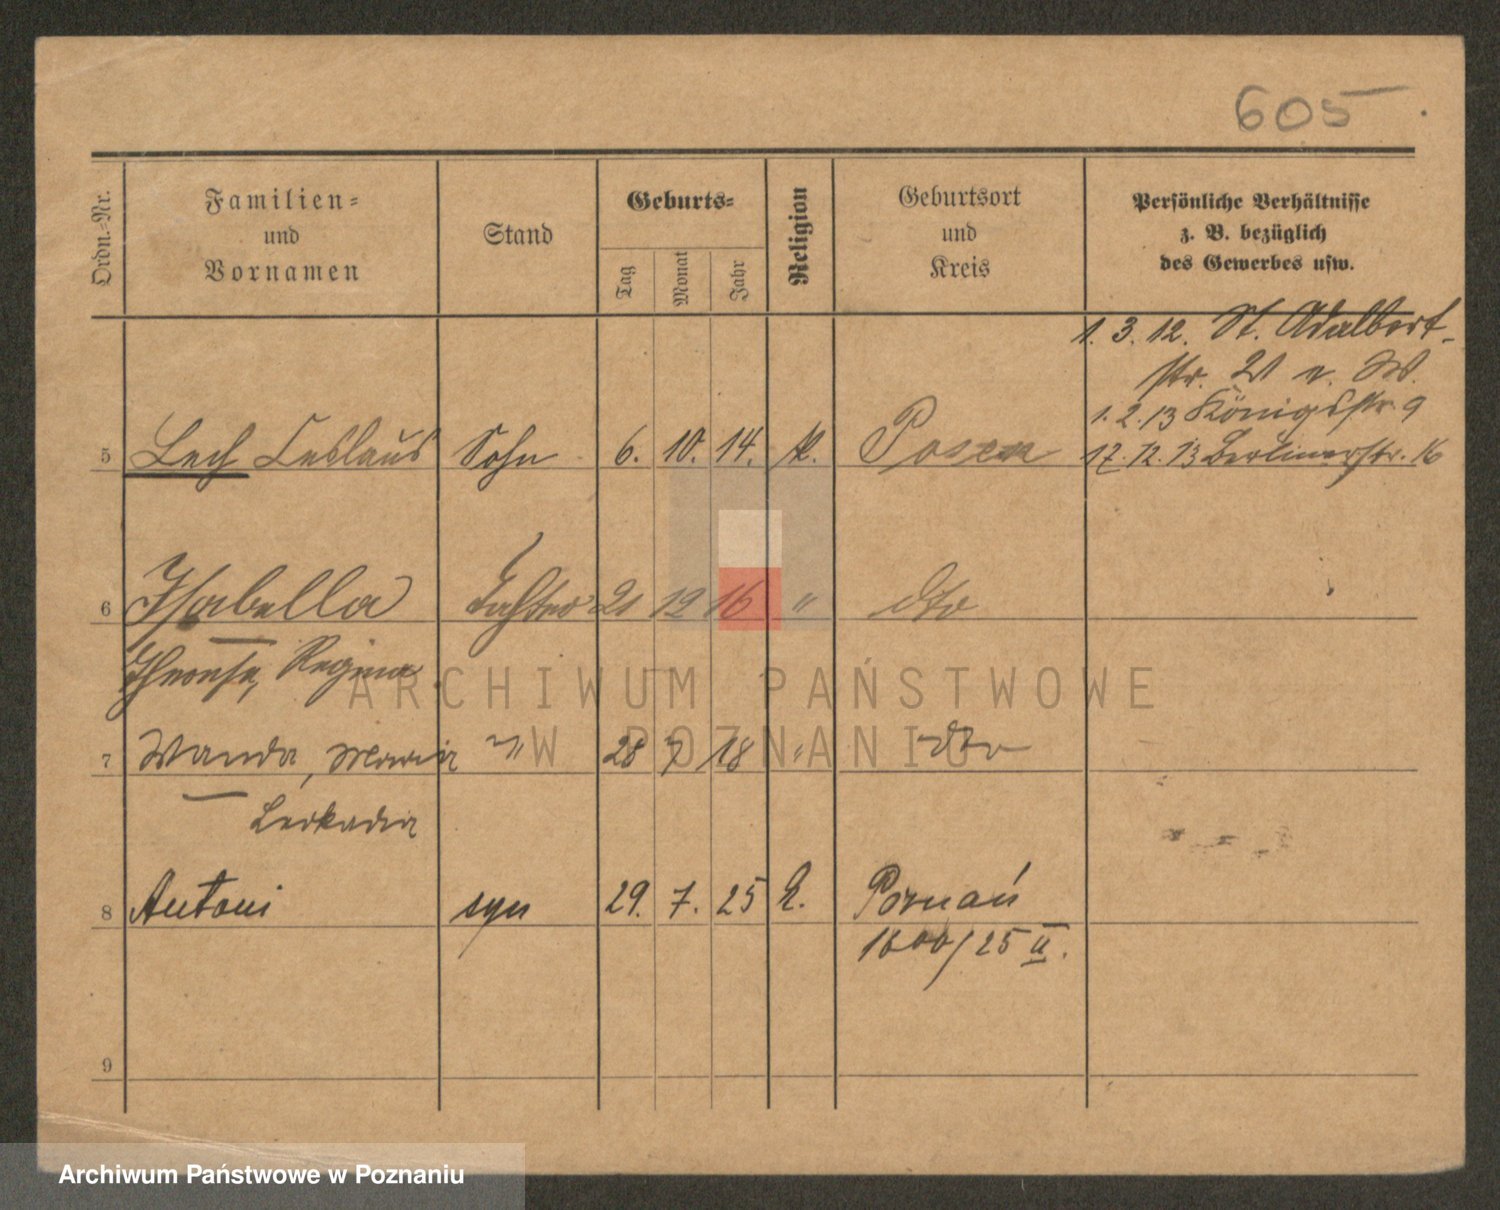 605
Ordn.=Nr.
Familien=
und
Vornamen
Stand
Geburts=
Tag
Monat
Jahr
Religion
Geburtsort
und
Kreis
Persönliche Verhältnisse
z. B. bezüglich
des Gewerbes usw.
1. 3. 12. St. Adalbert-
str.
1. 2. 13 Königsstr. 9
5 Lech Ceslaus Sohn 6. 10. 14. k. Posen 17. 12. 13 Berlinerstr. 16
6 Isabella Tochter 21 12 16 " dto
Therese, Regina
7 Wanda, Maria " 28 7 18 " dto
Leokadia
8 Antoni syn 29. 7. 25 k. Poznań
1600/25 II.
9
ARCHIWUM PAŃSTWOWE
W POZNANIU
Archiwum Państwowe w Poznaniu